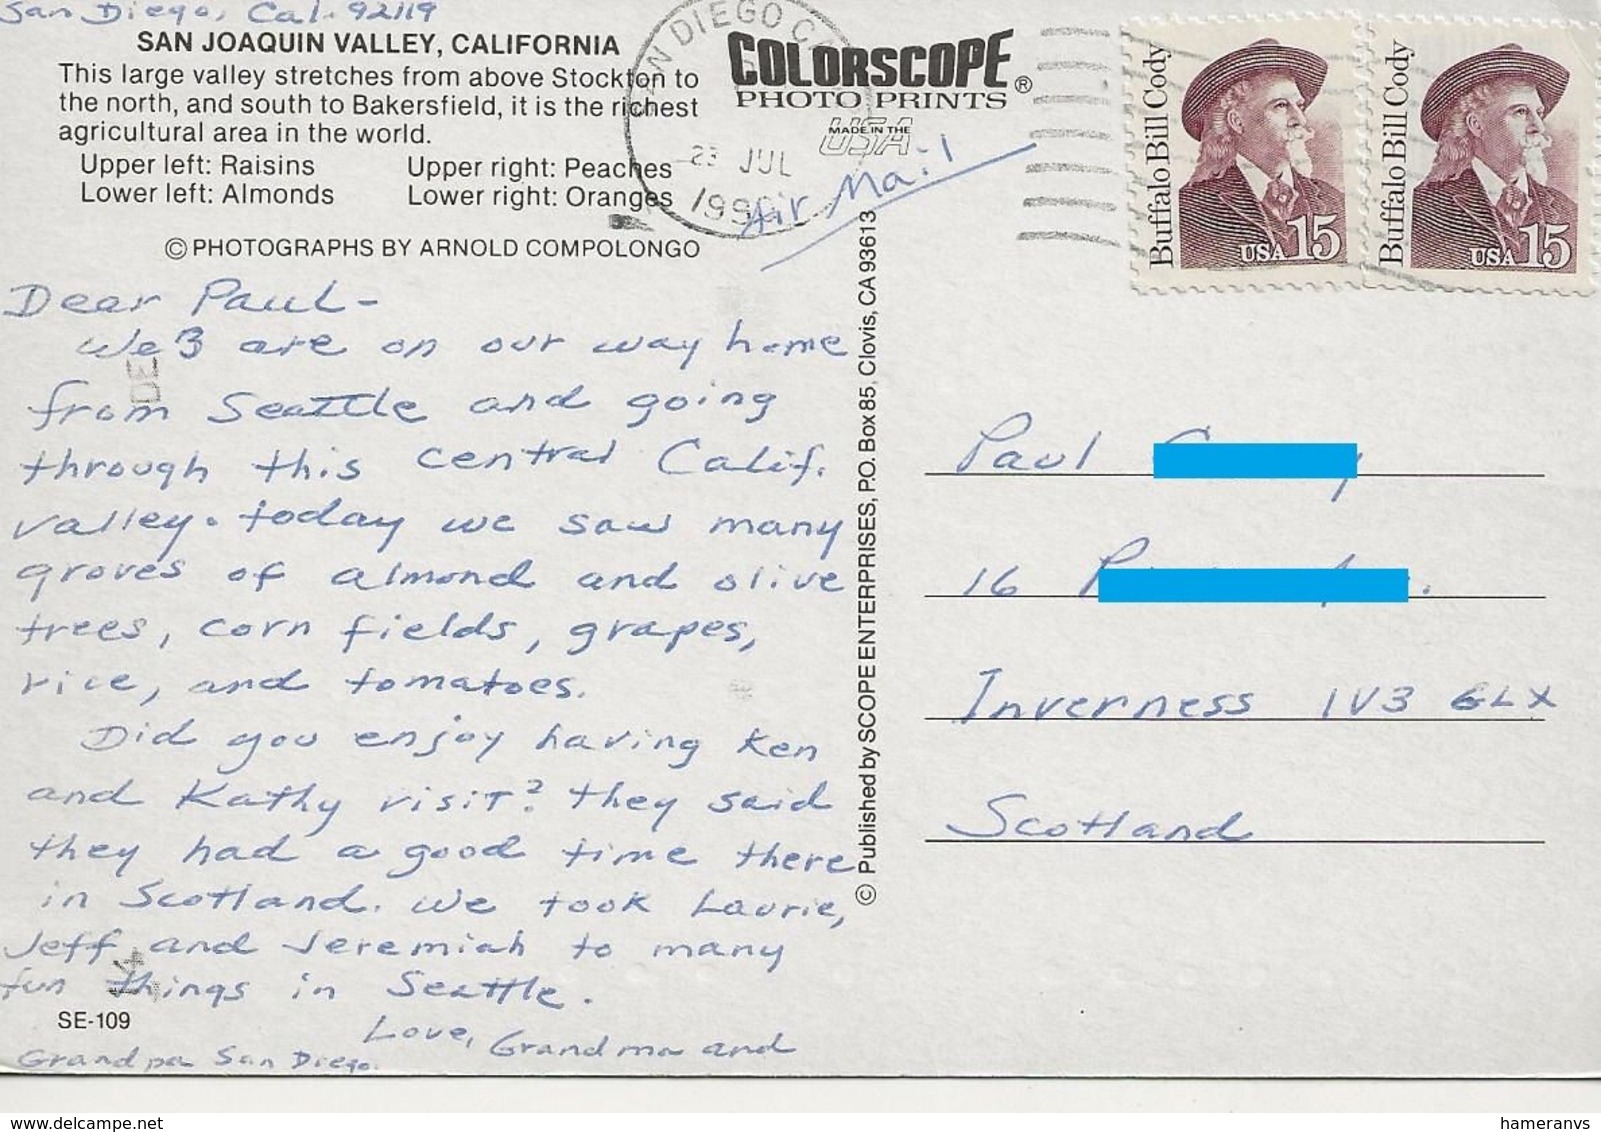 San Diego, Cal. 92119
SAN JOAQUIN VALLEY, CALIFORNIA
This large valley stretches from above Stockton to
the north, and south to Bakersfield, it is the richest
agricultural area in the world.
Upper left: Raisins Upper right: Peaches
Lower left: Almonds Lower right: Oranges
© PHOTOGRAPHS BY ARNOLD COMPOLONGO
COLORSCOPE®
PHOTO PRINTS
MADE IN THE
USA
SAN DIEGO CA
23 JUL
Air Mail
Buffalo Bill Cody
USA 15
Buffalo Bill Cody
USA 15
Dear Paul -
We 3 are on our way home
from Seattle and going
through this central Calif.
valley. Today we saw many
groves of almond and olive
trees, corn fields, grapes,
rice, and tomatoes.
Did you enjoy having Ken
and Kathy visit? They said
they had a good time there
in Scotland. We took Laurie,
Jeff, and Jeremiah to many
fun things in Seattle.
Love, Grandma and
Grandpa San Diego.
SE-109
© Published by SCOPE ENTERPRISES, P.O. Box 85, Clovis, CA 93613
Paul
16
Inverness IV3 6LX
Scotland
delcampe.net
hameranvs